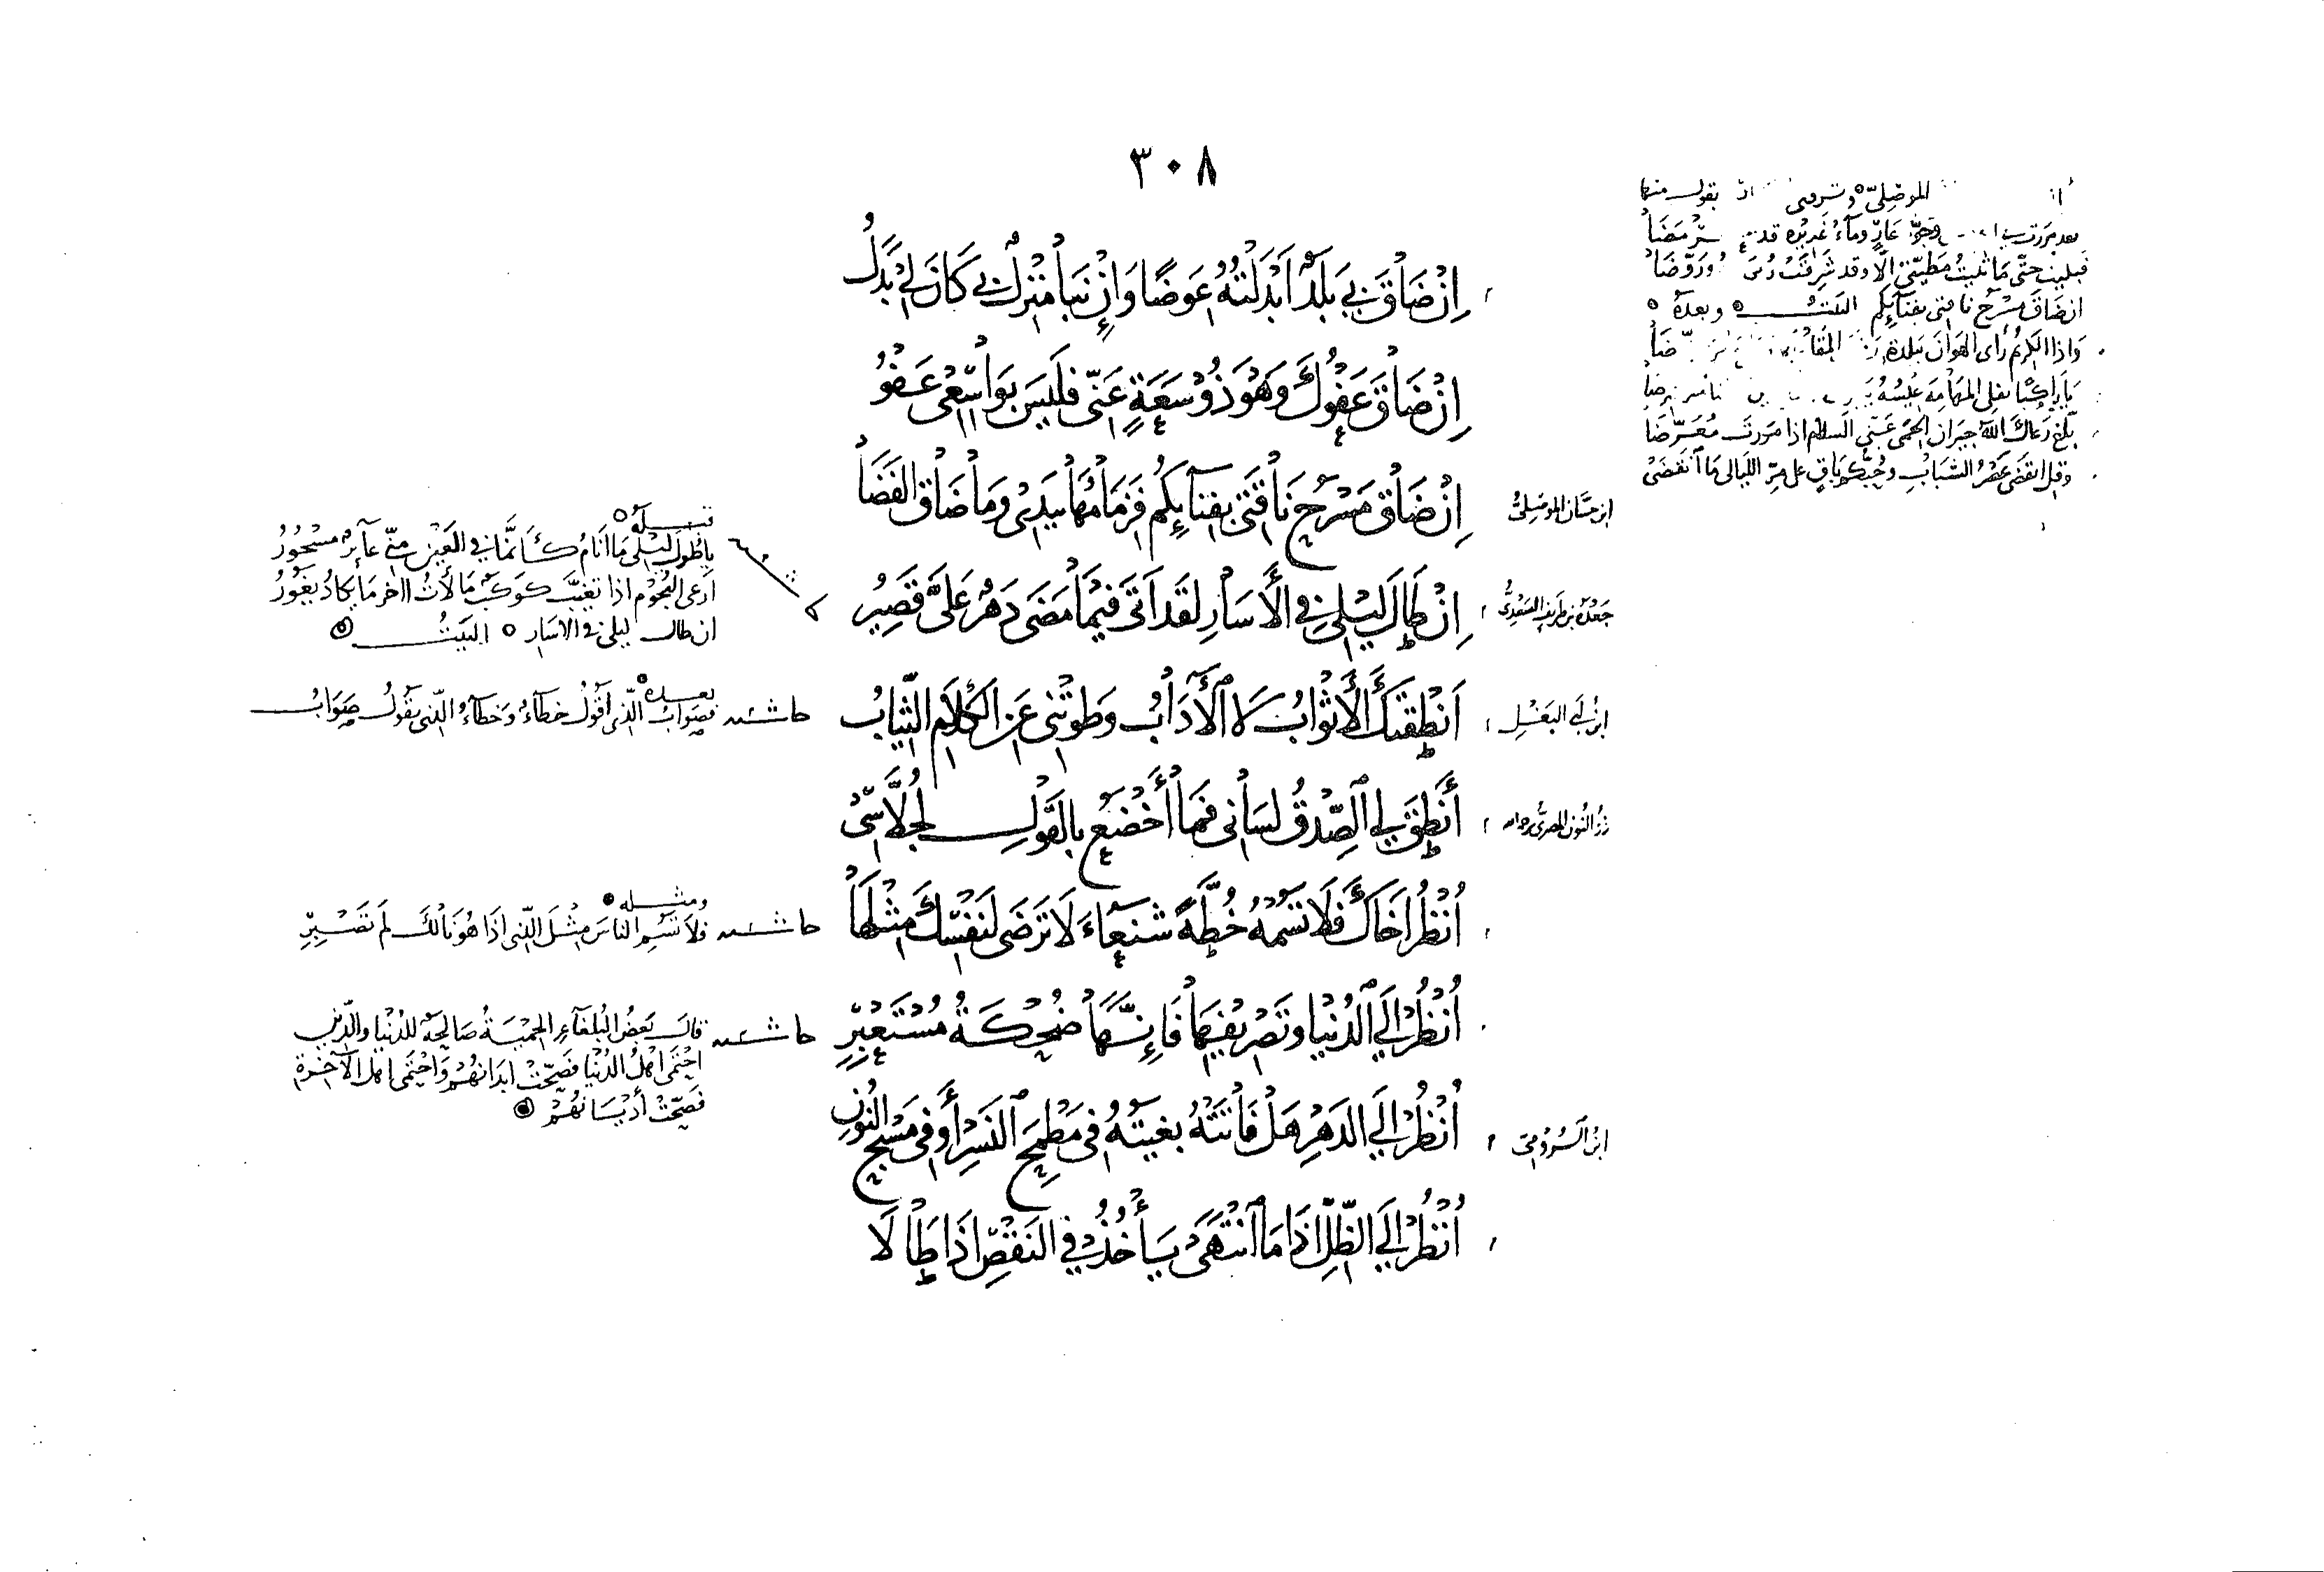 ٣٠٨
إِنْ ضَاقَ بِي بَلَدٌ أَبْدَلْتُهُ عِوَضًا وَإِنْ نَبَا مَنْزِلٌ بِي كَانَ لِي بَدَلُ
إِنْ ضَاقَ عَفْوُكَ وَهْوَ ذُو سَعَةٍ عَنِّي فَلَيْسَ بِوَاسِعِي عَفْوُ
ابن حسان الموصلي
إِنْ ضَاقَ مَسْرَحُ نَاقَتِي بِفِنَائِكُم فَزِمَامُهَا بِيَدِي وَمَا ضَاقَ الفَضَا
جعدة بن طريف السعدي
إِنْ طَالَ لَيْلِي فِي الأَسَارِ لَقَدْ أَتَى فِيمَا مَضَى دَهْرٌ عَلَيَّ قَصِيرُ
ابن أبي البغل
أَنْطَقَتْكَ الأَثْوَابُ لَا الآدَابُ وَطَوَتْنِي عَنِ الكَلَامِ الثِّيَابُ
ذو النون المصري رحمه الله
أَنْطَقَ لِي الصِّدْقُ لِسَانِي فَمَا أَخْضَعُ بِالقَوْلِ لِجُلَّاسِي
أُنْظُرْ أَخَاكَ فَلَا تَسُمْهُ خُطَّةً شَنْعَاءَ لَا تَرْضَى لِنَفْسِكَ مِثْلَهَا
أُنْظُرْ إِلَى الدُّنْيَا وَتَصْرِيفِهَا فَإِنَّهَا ضُحْكَةُ مُسْتَعْبِرِ
ابن الرومي
أُنْظُرْ إِلَى الدَّهْرِ هَلْ فَاتَتْهُ بُغْيَتُهُ فِي مَطْمَحِ النَّسْرِ أَوْ فِي مَسْبَحِ النُّونِ
أُنْظُرْ إِلَى الظِّلِّ إِذَا مَا انْتَهَى يَأْخُذُ فِي النَّقْصِ إِذَا طَالَا
الموصلي يقول منها
وماء غديره قد
فبليت حتى ما تليت مطيتي إلا وقد شرقت
ان ضاق مسرح ناقتي بفنائكم البيت وبعده
واذا الكريم رأى الهوان ببلدة
يا راكبا يفلي المهامه عيسه
بلغ رعاك الله جيران الحمى عني السلام اذا مررت معرضا
وقل انقضى عصر الشباب وحبكم باق على مر الليالي ما انقضى
قبله
يا طول ليلي ما أنام كأنما في العين مني عائر مسجور
أرعى النجوم اذا تغيب كوكب ما لأت آخر ما يكاد يغور
ان طال ليلي في الاسار البيت
بعده
حاشية فصواب الذي أقول خطاء وخطاء الذي يقول صواب
ومثله
حاشية فلا تسم الناس مثل الذي اذا هو نالك لم تصبر
حاشية قال بعض البلغاء الحمية صالحة للدنيا والدين
احتمى أهل الدنيا فصحت ابدانهم واحتمى اهل الآخرة
فصحت أديانهم